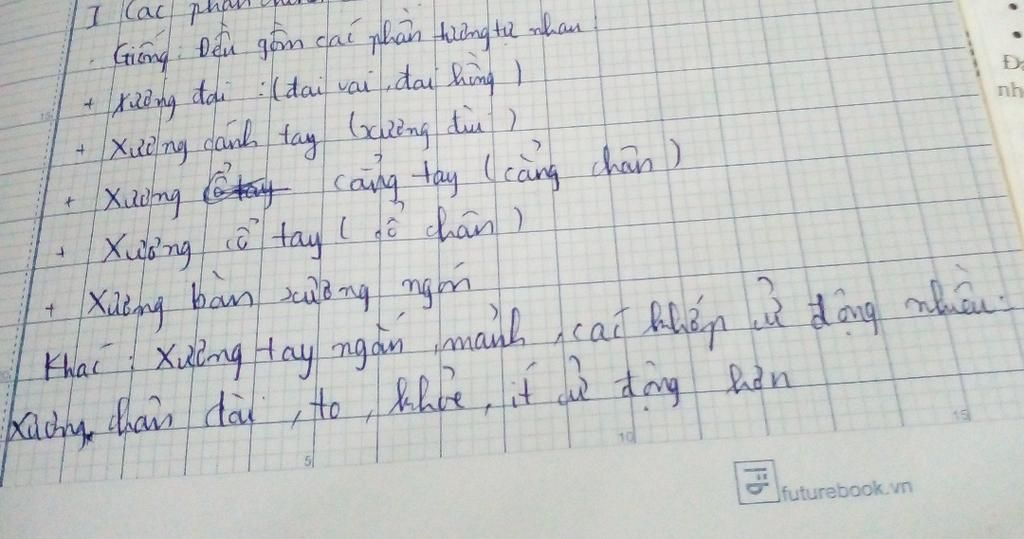 I Các phần
. Giống: Đều gồm các phần tương tự nhau
+ Xương đai : (đai vai, đai hông)
+ Xương cánh tay (xương đùi)
+ Xương cẳng tay (cẳng chân)
+ Xương cổ tay (cổ chân)
+ Xương bàn xương ngón
Khác : Xương tay ngắn, mảnh, các khớp cử động nhiều.
Xương chân dài, to, khỏe, ít cử động hơn
5
10
15
futurebook.vn
Đ
nh